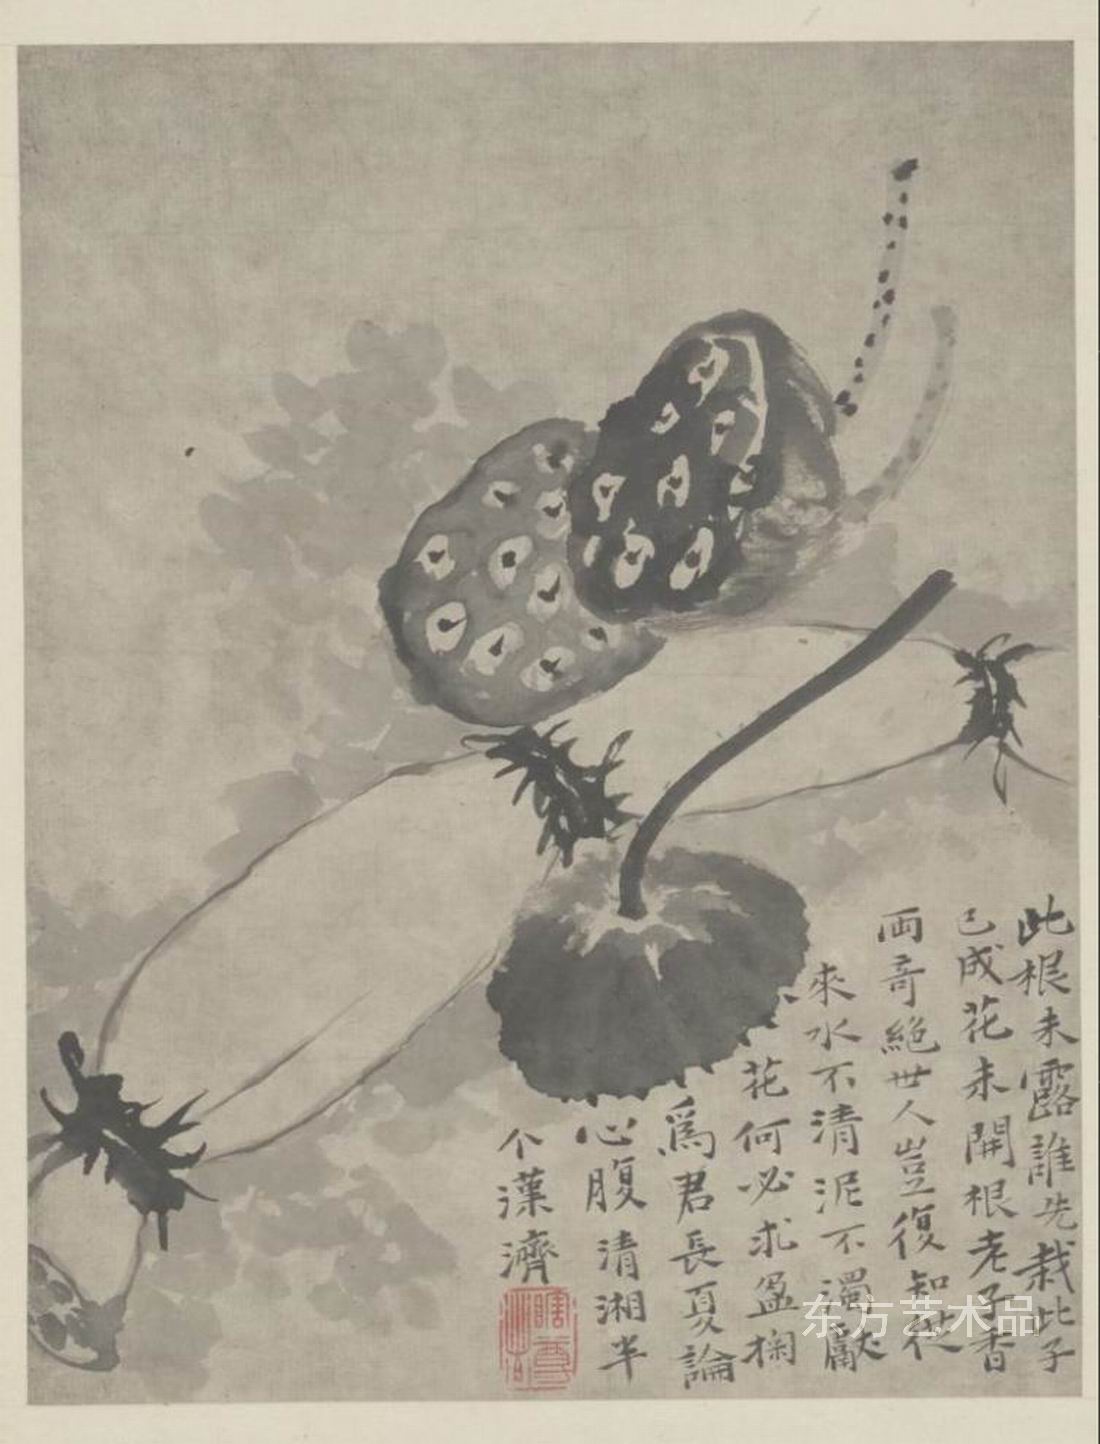 此根未露誰先栽此子
已成花未開根老子香
兩奇絕世人豈復知從
來水不清泥不濁獻
花何必求盈掬
爲君長夏論
心腹清湘半
个漢濟
瞎尊
東方艺术品